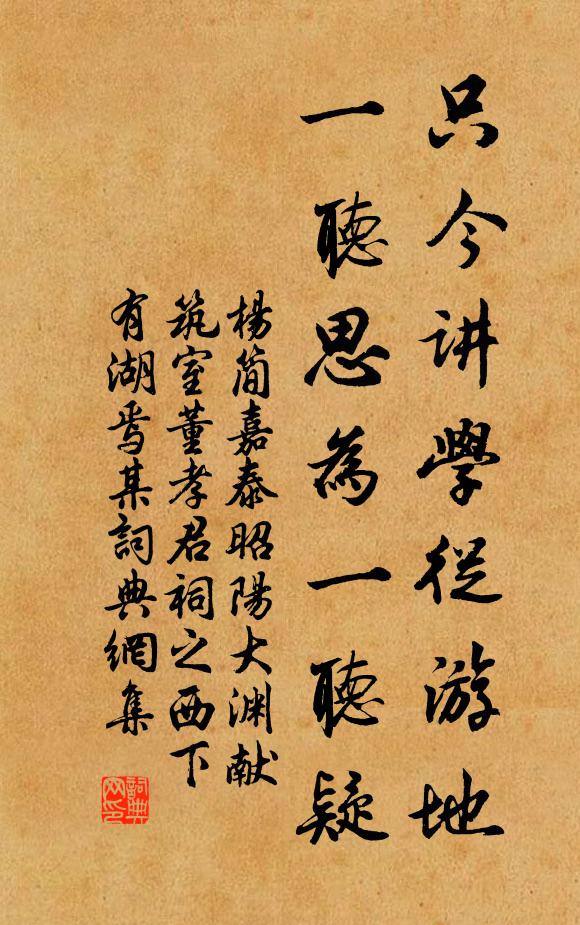 只今讲學從游地
一聽思為一聽疑
楊简嘉泰昭陽大渊献
筑室董孝君祠之西下
有湖焉某詞典網集
詞典网印